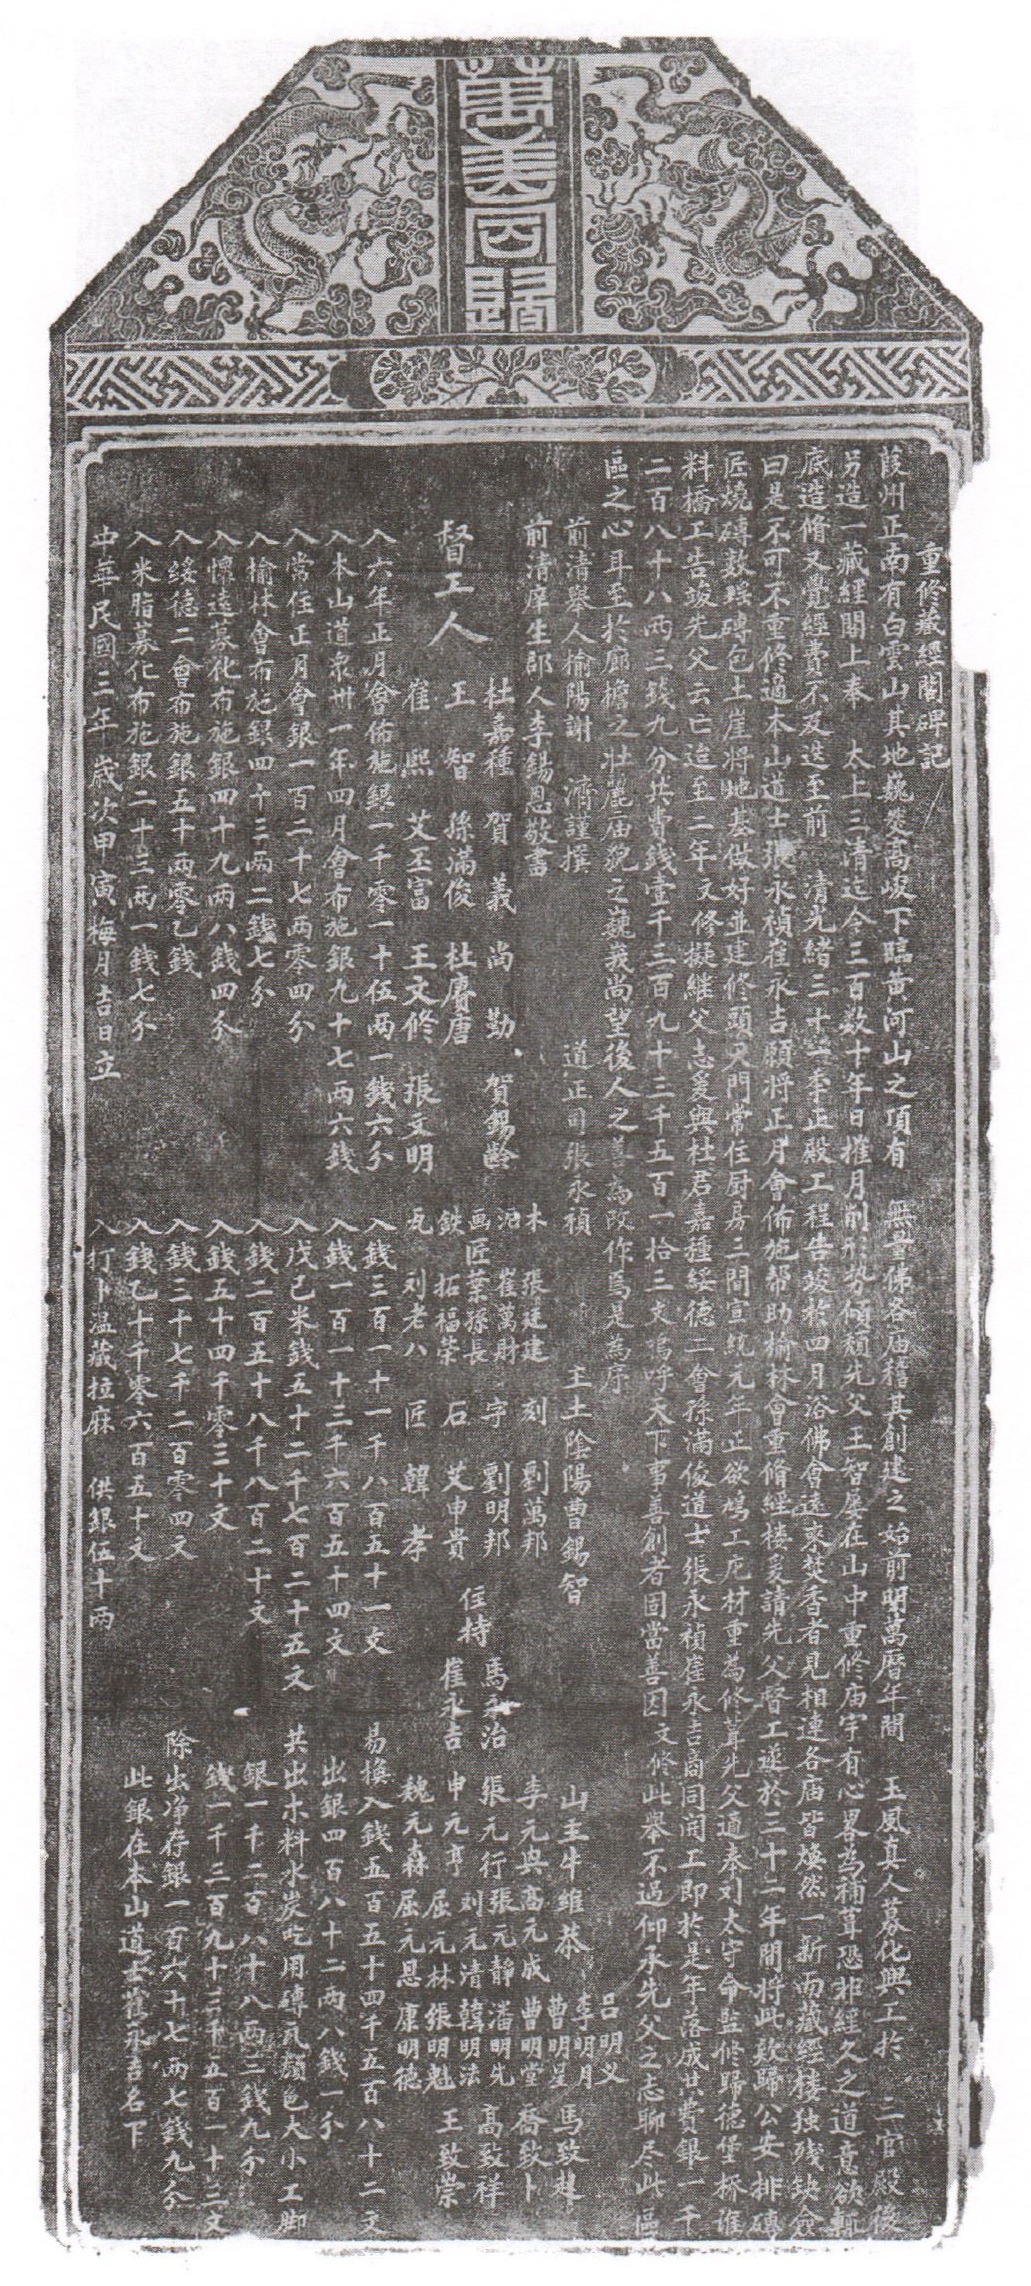 萬善同歸
重修藏經閣碑記
葭州正南有白雲山其地巍峩高峻下臨黃河山之頂有 無量佛各庙稽其創建之始前明萬曆年間 玉風真人募化興工於 三官殿後
另造一藏經閣上奉 太上三清迄今三百数十年日摧月削形势傾頹先父王智屡在山中重修庙宇有心畧為補葺恐非經久之道意欲輒
底造脩又覺經費不及迭至前 清光緒三十一季正殿工程告竣於四月浴佛會遠来焚香者見相連各庙皆煥然一新而藏經楼独殘缺僉
曰是不可不重修適本山道士張永禎崔永吉願将正月會佈施帮助榆林會重脩經楼爰請先父督工遂於三十二年間将此欵歸公安排磚
匠燒磚数窑磚包土崖将地基做好並建修頭又門常住厨房三間宣統元年正欲鳩工庀材重為修葺先父適奉刘太守命監修歸德堡桥誰
料橋工告竣先父云亡迨至二年又修擬继父志爰與杜君嘉種綏德二會孫滿俊道士張永禎崔永吉商同開工即於是年落成共費銀一千
二百八十八両三錢九分共費錢壹千三百九十三千五百一拾三文嗚呼天下事善創者固當善因文修此舉不過仰承先父之志聊尽此區
區之心耳至於廊檐之壮麗庙貌之巍峩尚望後人之善為改作焉是為序
前清舉人榆陽謝 濟謹撰 道正司張永禎 主土陰陽曹錫智 山主牛維恭
前清庠生郡人李錫恩敬書
督工人
杜嘉種 賀義 尚勤 賀錫齡
王智 孫滿俊 杜賡唐
崔熙 艾丕富 王文修 張文明
木 張廷建 刻 劉萬邦
泥 崔萬財 字 劉明邦
画匠葉孫長
鉄 拓福荣 石 艾申貴
瓦 刘老八 匠 韓孝
住持 馬永治 崔永吉
李元典 高元成 曹明堂 喬致卜
張元行 張元靜 潘明先 高致祥
刘元清 韓明法
申元亨 屈元林 張明魁 王致崇
魏元森 屈元恩 康明德
呂明义
李明月
曹明星 馬致赴
入六年正月會佈施銀一千零二十伍両一錢六分 入錢三百一十一千八百五十一文 易换入錢五百五十四千五百八十二文
入本山道衆卅一年四月會布施銀九十七両六錢 入錢一百一十三千六百五十四文 出銀四百八十二両八錢一分
入常住正月會銀一百二十七両零四分 入戊己米錢五十二千七百二十五文 共出木料水炭吃用磚瓦顏色大小工脚
入榆林會布施銀四十三両二錢七分 入錢二百五十八千八百二十文 銀一千二百八十八両三錢九分
入懷遠募化布施銀四十九両八錢四分 入錢五十四千零三十文 錢一千三百九十三千五百一十三文
入綏德二會布施銀五十両零乙錢 入錢三十七千二百零四文 除出净存銀一百六十七両七錢九分
入米脂募化布施銀二十三両一錢七分 入錢乙十千零六百五十文 此銀在本山道士崔永吉名下
中華民國三年歲次甲寅梅月吉日立 入打卜温藏拉麻 供銀伍十両